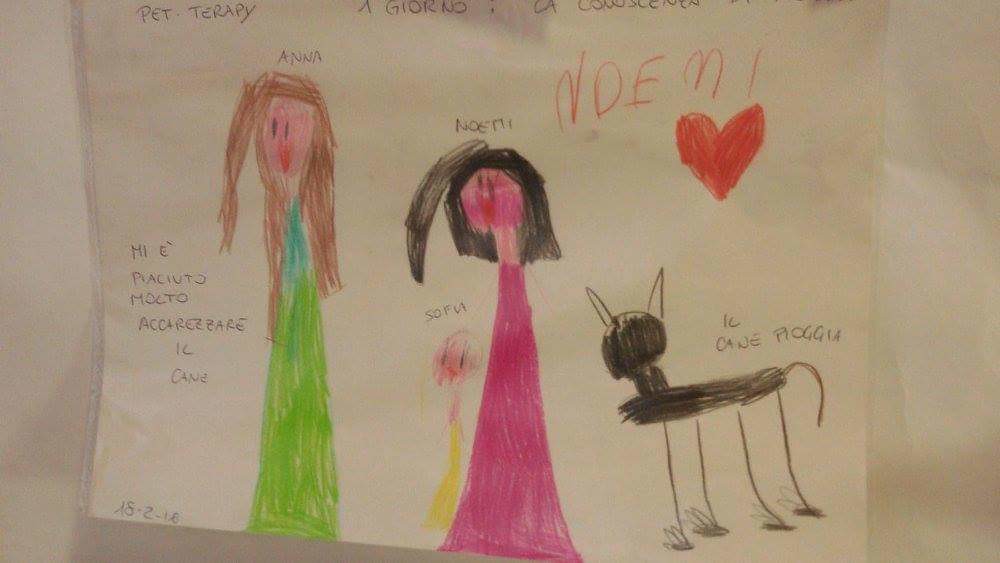 PET. TERAPY
1 GIORNO : LA CONOSCENZA DI
ANNA
NOEMI
NOEMI
MI È
PIACIUTO
MOLTO
ACCAREZZARE
IL
CANE
SOFIA
IL
CANE PIOGGIA
18-2-16